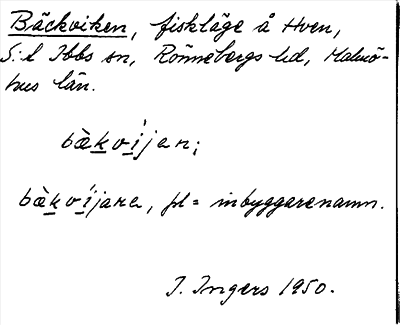 Bäckviken, fiskläge å Hven,
S:t Ibbs sn, Rönnebergs hd, Malmö-
hus län.
bæ̀kvíjen;
bæ̀kvíjare, pl = inbyggarenamn.
I. Ingers 1950.